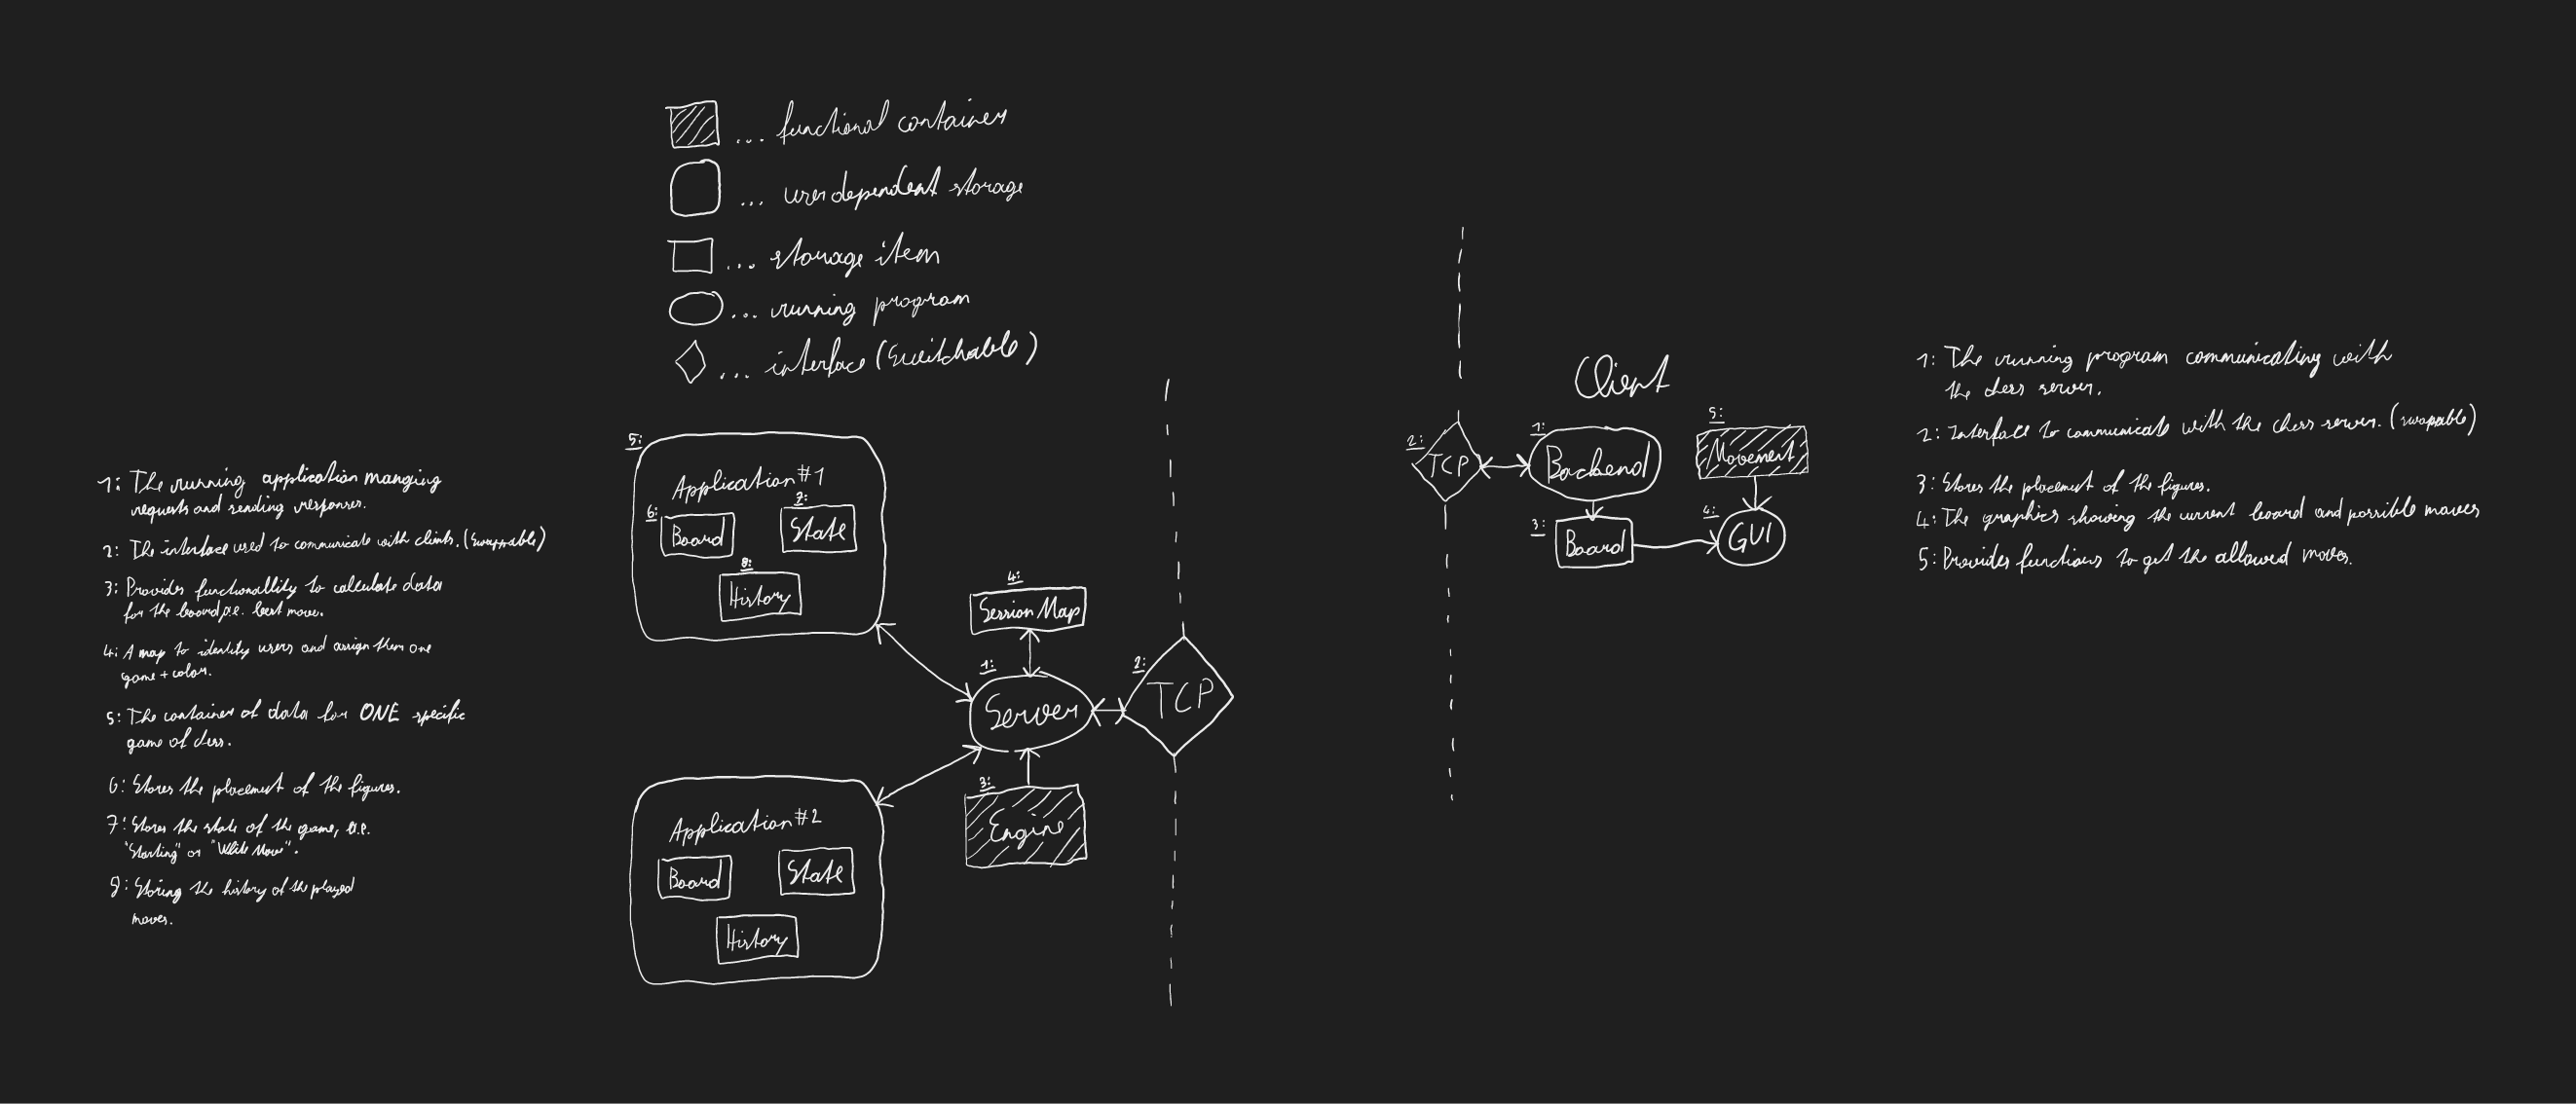 ... functional container
... userdependent storage
... storage item
... running program
... interface (switchable)
1: The running application manging
requests and sending responses.
2: The interface used to communicate with clients. (swappable)
3: Provides functionallity to calculate data
for the board p.e. best move.
4: A map to identity users and assign them one
game + color.
5: The container of data for ONE specific
game of chess.
6: Stores the placement of the figures.
7: Stores the state of the game, p.e.
"Starting" or "White Move".
8: Storing the history of the played
moves.
5:
Application #1
6:
Board
7:
State
8:
History
4:
Session Map
1:
Server
2:
TCP
3:
Engine
Application #2
Board
State
History
Client
2:
TCP
1:
Backend
5:
Movement
3:
Board
4:
GUI
1: The running program communicating with
the chess server.
2: Interface to communicate with the chess server. (swapable)
3: Stores the placement of the figures.
4: The graphics showing the current board and possible moves
5: Provides functions to get the allowed moves.